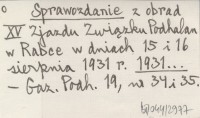 Sprawozdanie z obrad
XV Zjazdu Związku Podhalan
w Rabce w dniach 15 i 16
sierpnia 1931 r. 1931...
– Gaz. Podh. 19, nr 34 i 35.